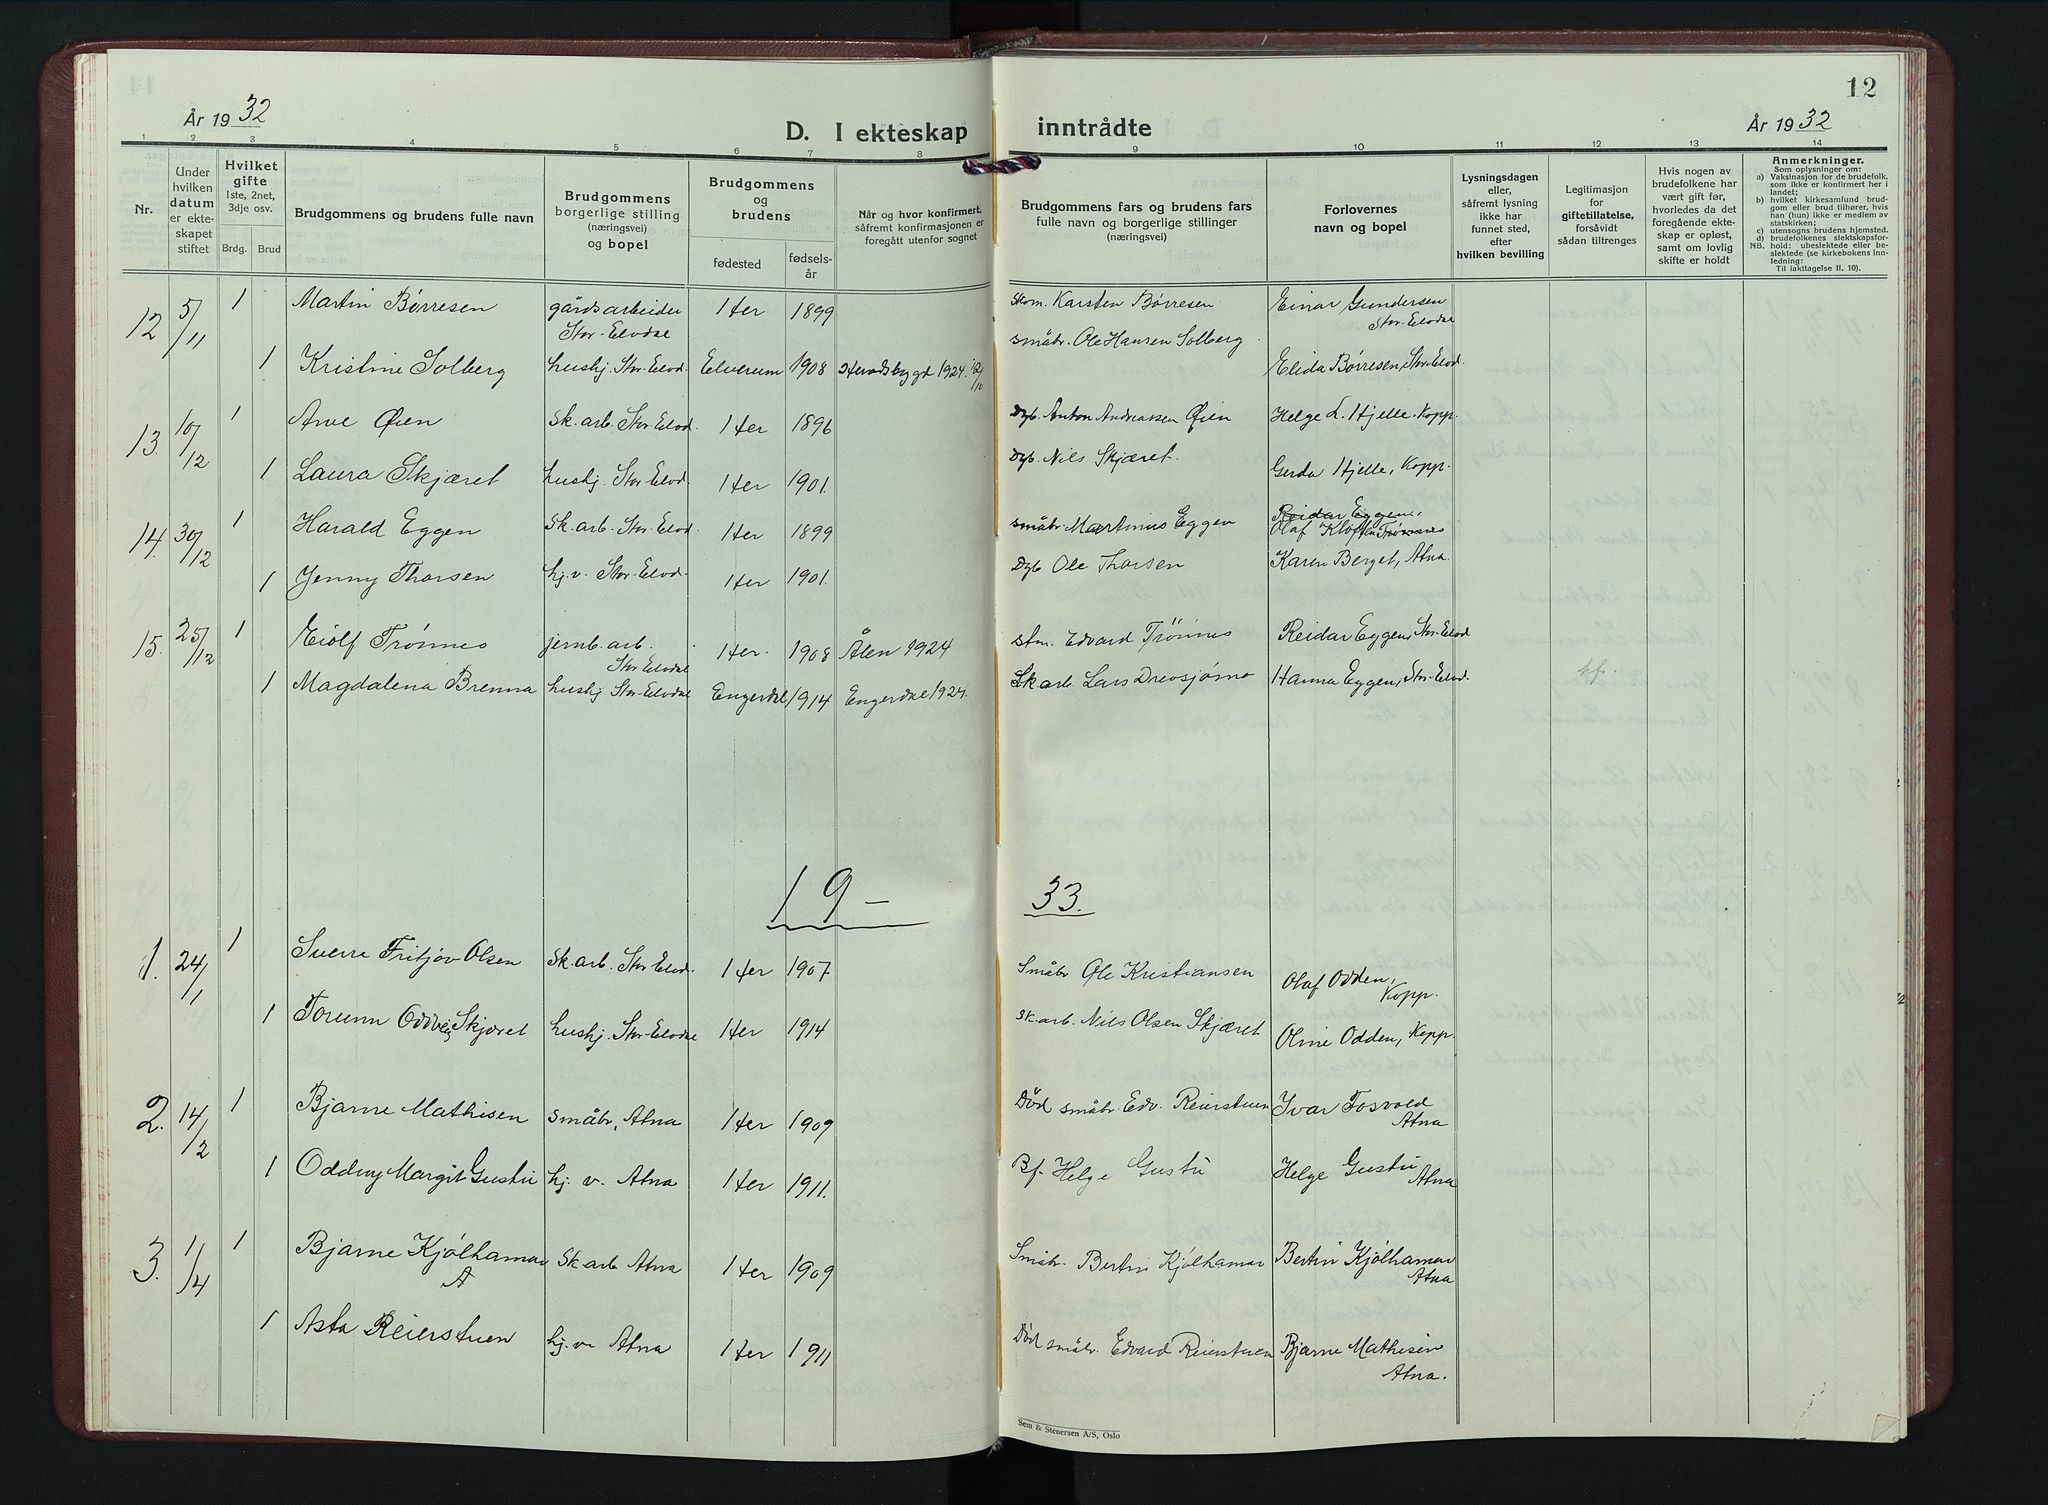 12
År 1932
År 1932
D. I ekteskap inntrådte
1 2 3 4 5 6 7 8 9 10 11 12 13 14
Nr.
Under hvilken datum er ekteskapet stiftet
Hvilket gifte
1ste, 2net, 3dje osv.
Brdg. Brud
Brudgommens og brudens fulle navn
Brudgommens borgerlige stilling (næringsvei) og bopel
Brudgommens og brudens
fødested
fødselsår
Når og hvor konfirmert, såfremt konfirmasjonen er foregått utenfor sognet
Brudgommens fars og brudens fars fulle navn og borgerlige stillinger (næringsvei)
Forlovernes navn og bopel
Lysningsdagen eller, såfremt lysning ikke har funnet sted, efter hvilken bevilling
Legitimasjon for giftetillatelse, forsåvidt sådan tiltrenges
Hvis nogen av brudefolkene har vært gift før, hvorledes da det foregående ekteskap er opløst, samt om lovlig skifte er holdt
Anmerkninger.
Som oplysninger om:
a) Vaksinasjon for de brudefolk, som ikke er konfirmert her i landet;
b) hvilket kirkesamfund brudgom eller brud tilhører, hvis han (hun) ikke er medlem av statskirken;
c) utensogns brudens hjemsted.
d) brudefolkenes slektskapsforhold: ubeslektede eller beslektede (se kirkebokens innledning:
NB. Til iakttagelse II. 10).
12 5/11 1 Martin Børresen gårdsarbeider Stor-Elvdal Her 1899 Skom. Karsten Børresen Einar Gundersen Stor-Elvdal
1 Kristine Solberg hushj. Stor-Elvd. Elverum 1908 Heradsbygd 1924 småbr. Ole Hansen Solberg Elida Børresen, Stor-Elvd.
13. 10/12 1 Arve Øien sk. arb. Stor-Elvd. Her 1896 Dgb. Anton Andreassen Øien Helge L. Hjelle. Kopp.
1 Laura Skjæret hushj. Stor-Elvd. Her 1901. Dgb. Nils Skjæret. Gerda Hjelle, Kopp.
14. 30/12 1 Harald Eggen sk. arb. Stor-Elvd. Her 1899 småbr. Martinus Eggen Reidar Eggen, Olaf Kloften Trønnes
1 Jenny Thorsen hj. v. Stor-Elvd. Her 1901. Dgb Ole Thorsen Karen Berget, Atna
15. 25/12 1 Eiolf Trønnes jernb. arb. Stor-Elvdal Her. 1908 Ålen 1924 stm. Edvard Trönnes Reidar Eggen, Stor-Elvd
1 Magdalena Brenna hushj Stor-Elvdal Engerdal 1914 Engerdal 1924. Sk arb. Lars Drevsjømo Hanna Eggen, Stor-Elvd. kf.
19– 33.
1. 24/1 1 Sverre Fritjov Olsen sk. arb. Stor-Elvd. Her 1907 Småbr Ole Kristiansen Olaf Odden, Kopp.
1 Torunn Oddveig Skjæret hushj. Stor-Elvdal Her 1914 sk. arb. Nils Olsen Skjæret Oline Odden, Kopp.
2. 14/2 1 Bjarne Mathisen småbr, Atna Her 1909 Död småbr. Edv. Reierstuen Ivar Fosvold Atna
1 Oddny Margit Gustu hj. v. Atna Her 1911. Bf. Helge Gustu Helge Gustu Atna
3. 1/4 1 Bjarne Kjølhamar A sk arb Atna Her 1909 Småbr. Bertin Kjølhamar Bertin Kjølhamar Atna
1 Asta Reierstuen hj. v. Atna Her 1911 Död småbr. Edvard Reierstuen Bjarne Mathisen Atna.
Sem & Stenersen A/S, Oslo